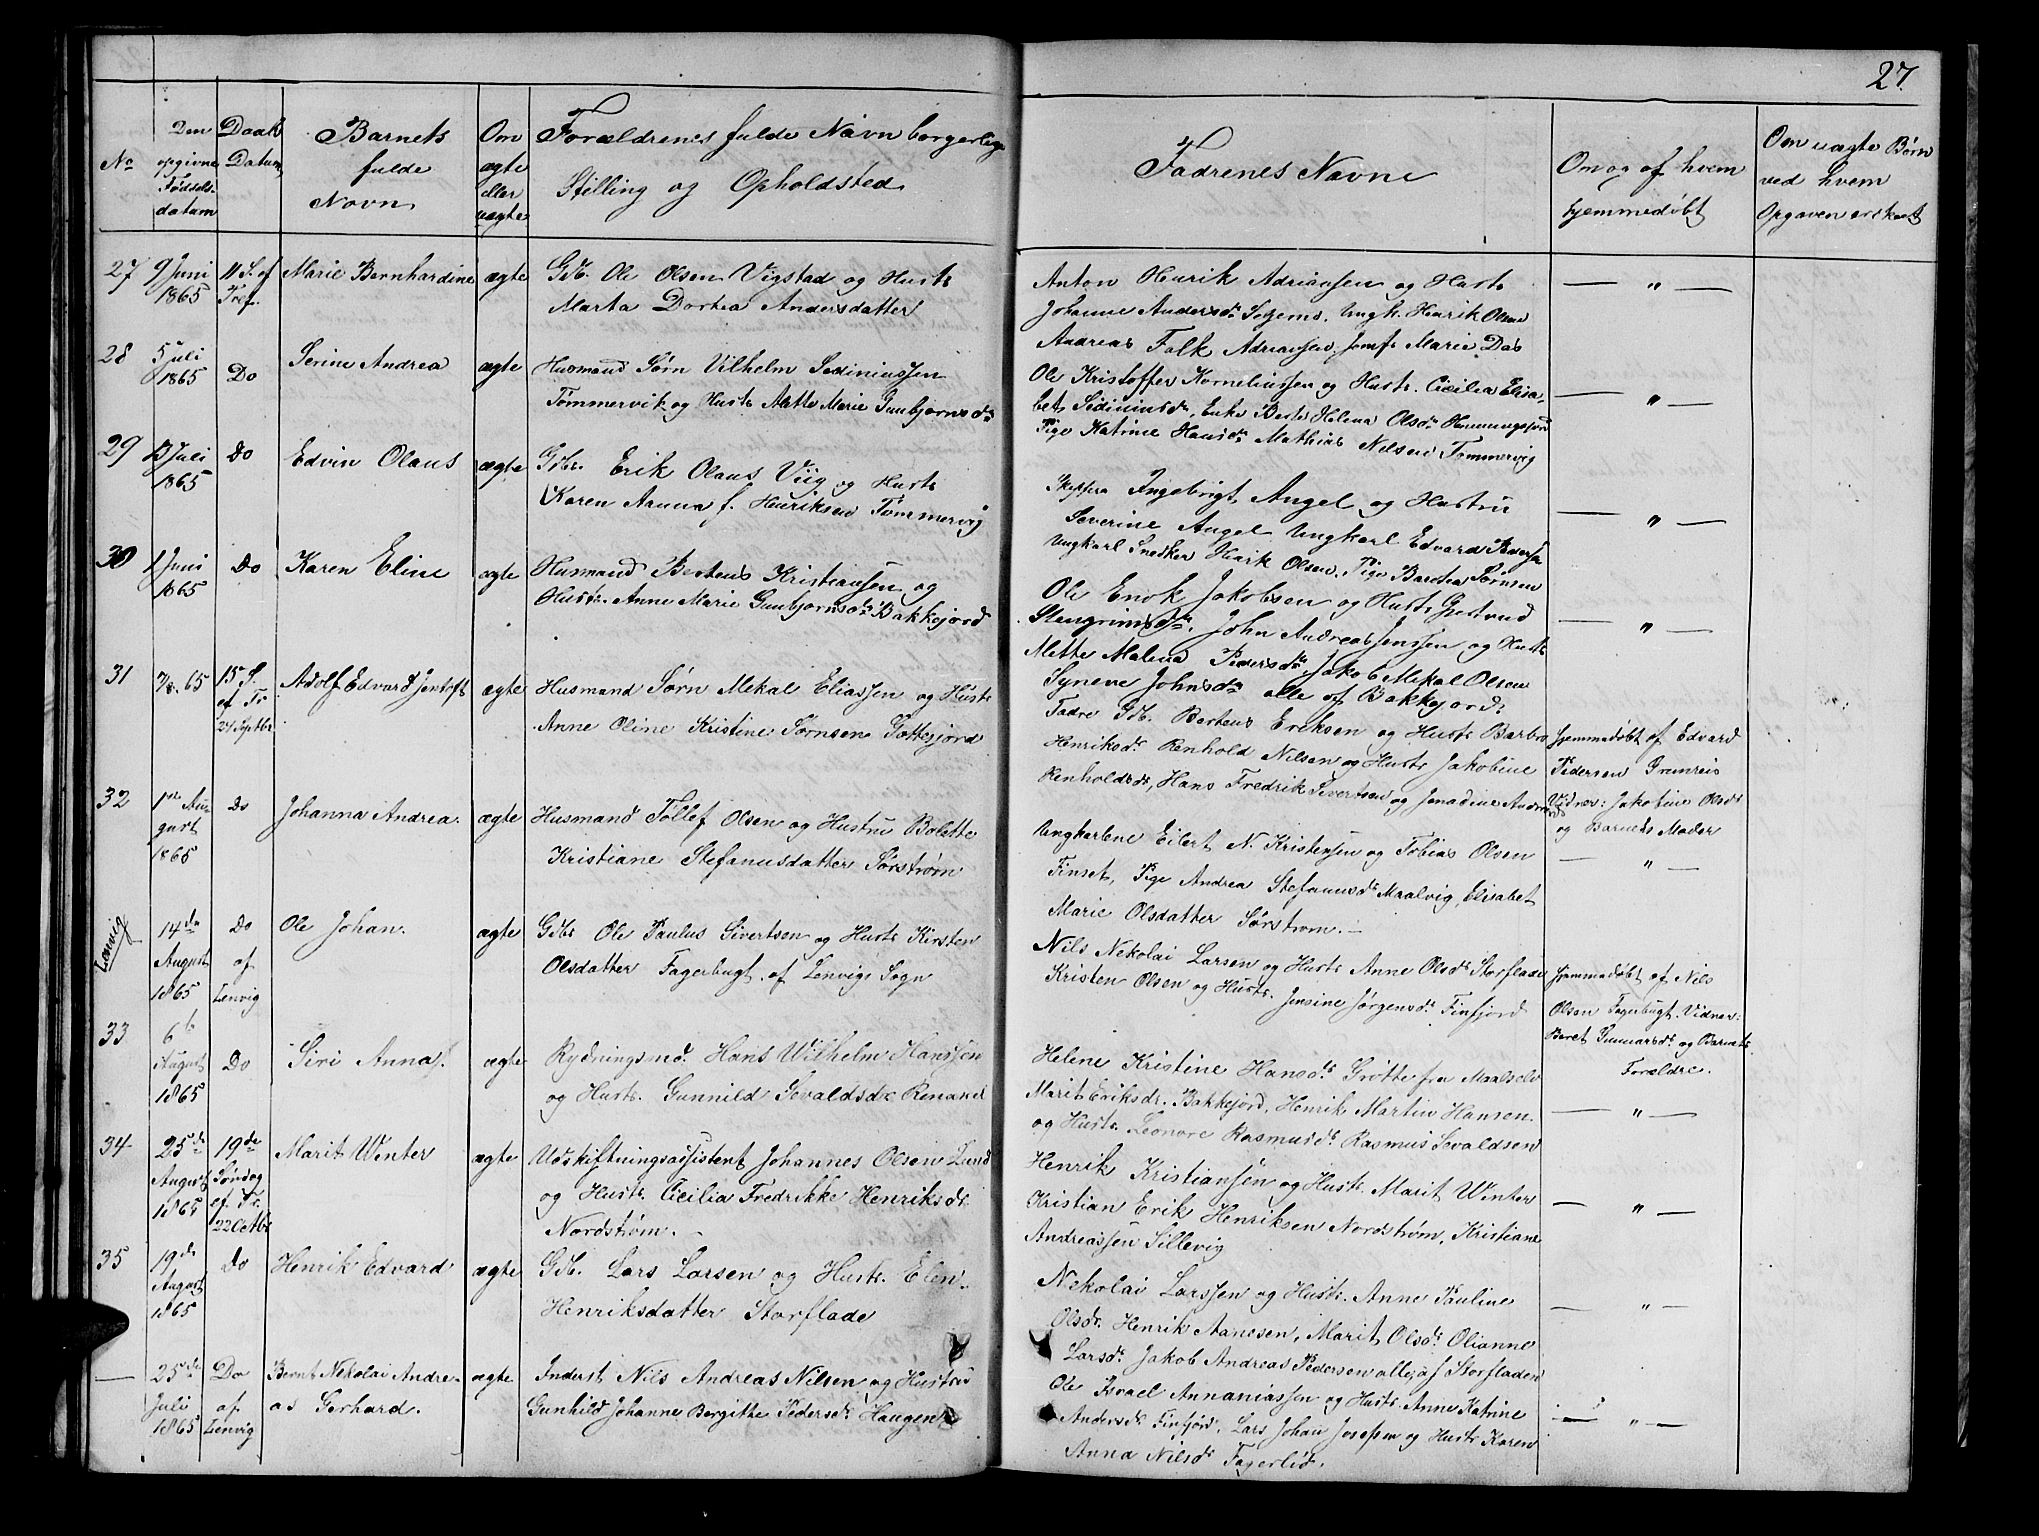 27.
No
Den opgivne Fødsels-datum
Daab Datum
Barnets fulde Navn
Om ægte eller uægte
Forældrenes fulde Navn borgerlige
Stilling og Opholdsted
Fadrenes Navne
Om og af hvem hjemmedøbt
Om uægte Børn ved hvem Opgaven er skeet
27
9 Juni 1865
11 S. ef Tref.
Marie Bernhardine
ægte
Gdb. Ole Olsen Vigstad og Hustr
Marta Dortea Andersdatter
Anton Henrik Adriansen og Hustr
Johanne Andersdr. Ungk. Henrik Olsen
Andreas Falk Adriansen, Jomf. Marie Das
— " —
28
5 Juli 1865
Do
Serine Andrea
ægte
Husmand Sørn Vilhelm Sediniussen
Tømmervik og Hustr Mette Marie Gunbjørnsdr
Ole Kristoffer Korneliussen og Hustr. Cicilia Elisa-
bet Sediniusdr, Enke Berte Helena Olsdr
Pige Katrine Hansdr Mathias Nilsen Tømmervig
— " —
29
Juli 1865
Do
Edvin Olaus
ægte
Gdbr. Erik Olaus Viig og Hustr
Karen Aanna f. Henriksen Tømmervig
Ingebrigt Angel og Hustru
Severine Angel Ungkarl Edvard
Ungkarl Snedker Henrik Olsen. Pige Sørnsen
— " —
30
1 Juni 1865
Do
Karen Eline
ægte
Husmand Berteus Kristiansen og
Hustr. Anne Marie Gunbjørnsdr Bakkejord
Ole Enok Jakobsen og Hustr Gjertrud
Stengrimsdr. John Andreas Jenssen og Hustr
Mette Malena Pedersdr Jakob Mekal Olsen
Syneve Johnsdr alle af Bakkejord.
— " —
31
7/8. 65
15 S. ef Tr 24 Septbr.
Adolf Edvard Jentoft
ægte
Husmand Sørn Mekal Eliassen og Hustr
Anne Oline Kristine Sørnsen Gottesjord
Fadre Gdb. Berteus Eriksen og Hustr Barbro
Henriksdr Renhold Nilsen og Hustr Jakobine
Renholdsdr, Hans Fredrik Sivertsen og Jonadine
Hjemmedøbt af Edvard
Pedersen Grunreis
Vidner: Jakobine Olsdr
og Barnets Moder
32
1ste August 1865
Do
Johanna Andrea.
ægte
Husmand Tollef Olsen og Hustru Bolette
Kristiane Stefanusdatter Sørstrøm
Ungkarlene Eilert N. Kristensen og Tobias Olsen
Finset, Pige Andrea Stefanusdr Maalvig, Elisabet
Marie Olsdatter Sørstrøm.—
— " —
Lenvig
14de August 1865
Do af Lenvig
Ole Johan.
ægte
Gdbr Ole Paulus Sivertsen og Hustr Kirsten
Olsdatter Fagerbugt af Lenvigs Sogn
Nils Nekolai Larsen og Hustr Anne Olsdr Storflade
Kristen Olsen og Hustr. Jensine Jørgensdr Finfjord
Hjemmedøbt af Nils
Olsen Fagerbugt. Vidner:
Beret Gunnarsdr og Barnets
Forældre.
33
6te August 1865
Do
Siri Anna.
ægte
Rydningsmd. Hans Wilhelm Hanssen
og Hustr. Gunnild Sevaldsdr Renaanel
Helene Kristine Hansdr Grøtte fra Maalselv
Marit Eriksdr. Bakkejord, Henrik Martin Hansen
og Hustr. Leonore Rasmusdr Rasmus Sevaldsen
— " —
34
25de August 1865
19de Søndag ef Tr. 22 Octbr
Marit Winter
ægte
Udskiftningsassistent Johannes Olsen Lund
og Hustr. Cicilia Fredrikke Henriksdr.
Nordstrøm.—
Henrik Kristiansen og Hustr. Marit Winter
Kristian Erik Henriksen Nordstrøm, Kristiane
Andreassen Sillevig
— " —
35
19de August 1865
Do
Henrik Edvard
ægte
Gdb. Lars Larsen og Hustr. Elen
Henriksdatter Storflade
Nekolai Larssen og Hustr. Anne Pauline
Olsdr. Henrik Aanesen, Marit Olsdr Olianne
Larsdr. Jakob Andreas Pedersen alle af Storfladen
— " —
—
25de Juli 1865
Do af Lenvig
Bernt Nekolai Andre-
as Gerhard.
ægte
Inderst Nils Andreas Nilsen og Hustru
Gunhild Johanne Bergitte Pedersdr. Haugen
Ole Israel Annaniassen og Hustr. Anne Katrine
Andersdr Finfjord, Lars Johan Josepsen og Hustr Karen
Anna Nilsdr Fagerlid.
— " —